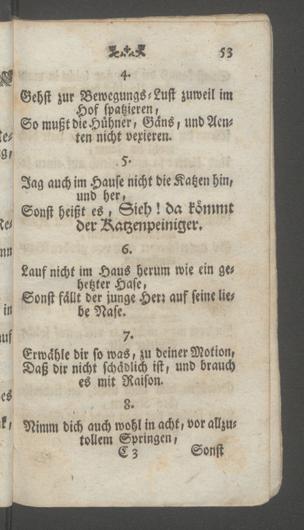 53
4.
Gehst zur Bewegungs-Lust zuweil im
Hof spatzieren,
So mußt die Hühner, Gäns, und Aen-
ten nicht vexieren.
5.
Jag auch im Hause nicht die Katzen hin,
und her,
Sonst heißt es, Sieh! da kömmt
der Katzenpeiniger.
6.
Lauf nicht im Haus herum wie ein ge-
hetzter Hase,
Sonst fällt der junge Herr auf seine lie-
be Nase.
7.
Erwähle dir so was, zu deiner Motion,
Daß dir nicht schädlich ist, und brauch
es mit Raison.
8.
Nimm dich auch wohl in acht, vor allzu-
tollem Springen,
C 3 Sonst